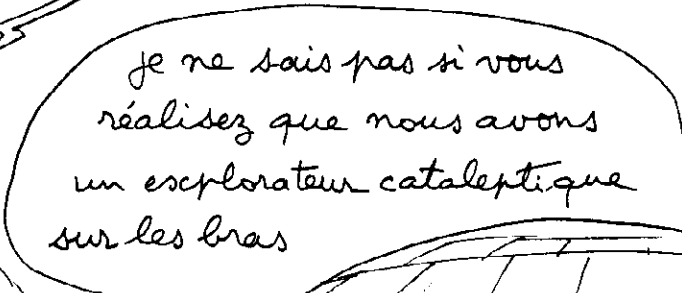 je ne sais pas si vous
réalisez que nous avons
un explorateur cataleptique
sur les bras